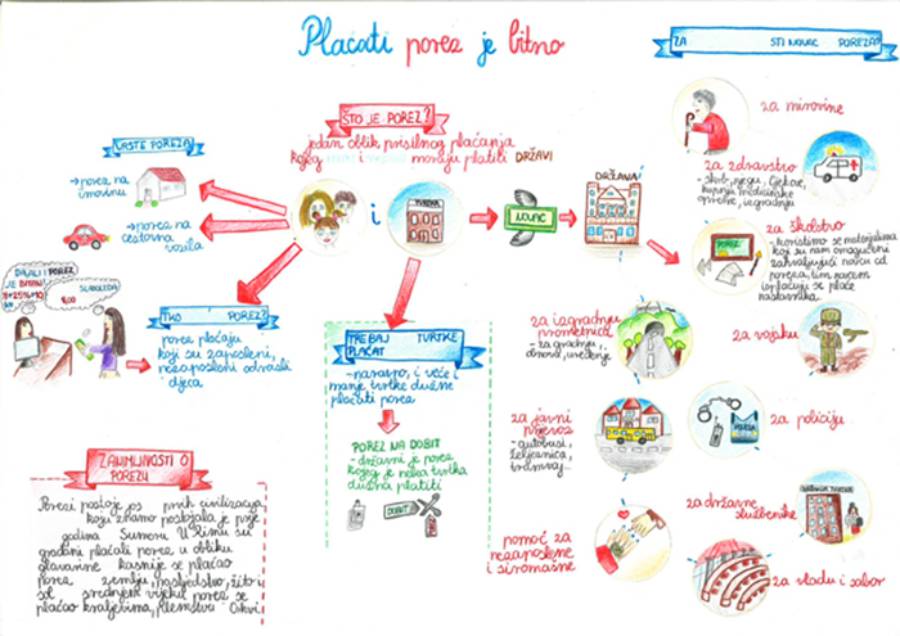 Plaćati porez je bitno
ZA STI NOVAC POREZA?
ŠTO JE POREZ?
jedan oblik prisilnog plaćanja
kojeg i moraju platiti DRŽAVI
VRSTE POREZA
→porez na
imovinu
→porez na
cestovna
vozila
i
TVRTKA
NOVAC
DRŽAVA
DAJALI I POREZ
JE BITAN!
SLADOLED A
8,00
TKO POREZ?
porez plaćaju
koji su zaposleni,
nezaposleni odrasli
djeca
TREBAJ TVRTKE
PLAĆAT
-naravno, i veće i
manje tvrtke dužne
plaćati porez
POREZ NA DOBIT
- državni je porez
kojeg je neka tvrtka
dužna platiti
DOBIT
ZANIMLJIVOSTI O
POREZU
Porezi postoje još prvih civilizacija
koji znamo postojala je prije
godina Sumeru U Rimu su
građani plaćali porez u obliku
glavarine kasnije se plaćao
porez zemlju, nasljedstvo, žito i
sol srednjem vijeku porez se
plaćao kraljevima, plemstvu Crkvi
za mirovine
za zdravstvo
- skrb, njegu, lijekove,
kupnju medicinske
opreme, izgradnju
za školstvo
- koristimo se materijalima
koji su nam omogućeni
zahvaljujući novcu od
poreza, tim novcem
isplaćuju se plaće
nastavnika
POREZ
za izgradnju
prometnica
- za gradnju,
obnovu, uređenje
za vojsku
za javni
prijevoz
- autobusi,
željeznica,
tramvaj...
za policiju
za državne
službenike
pomoć za
nezaposlene
i siromašne
za vladu i sabor